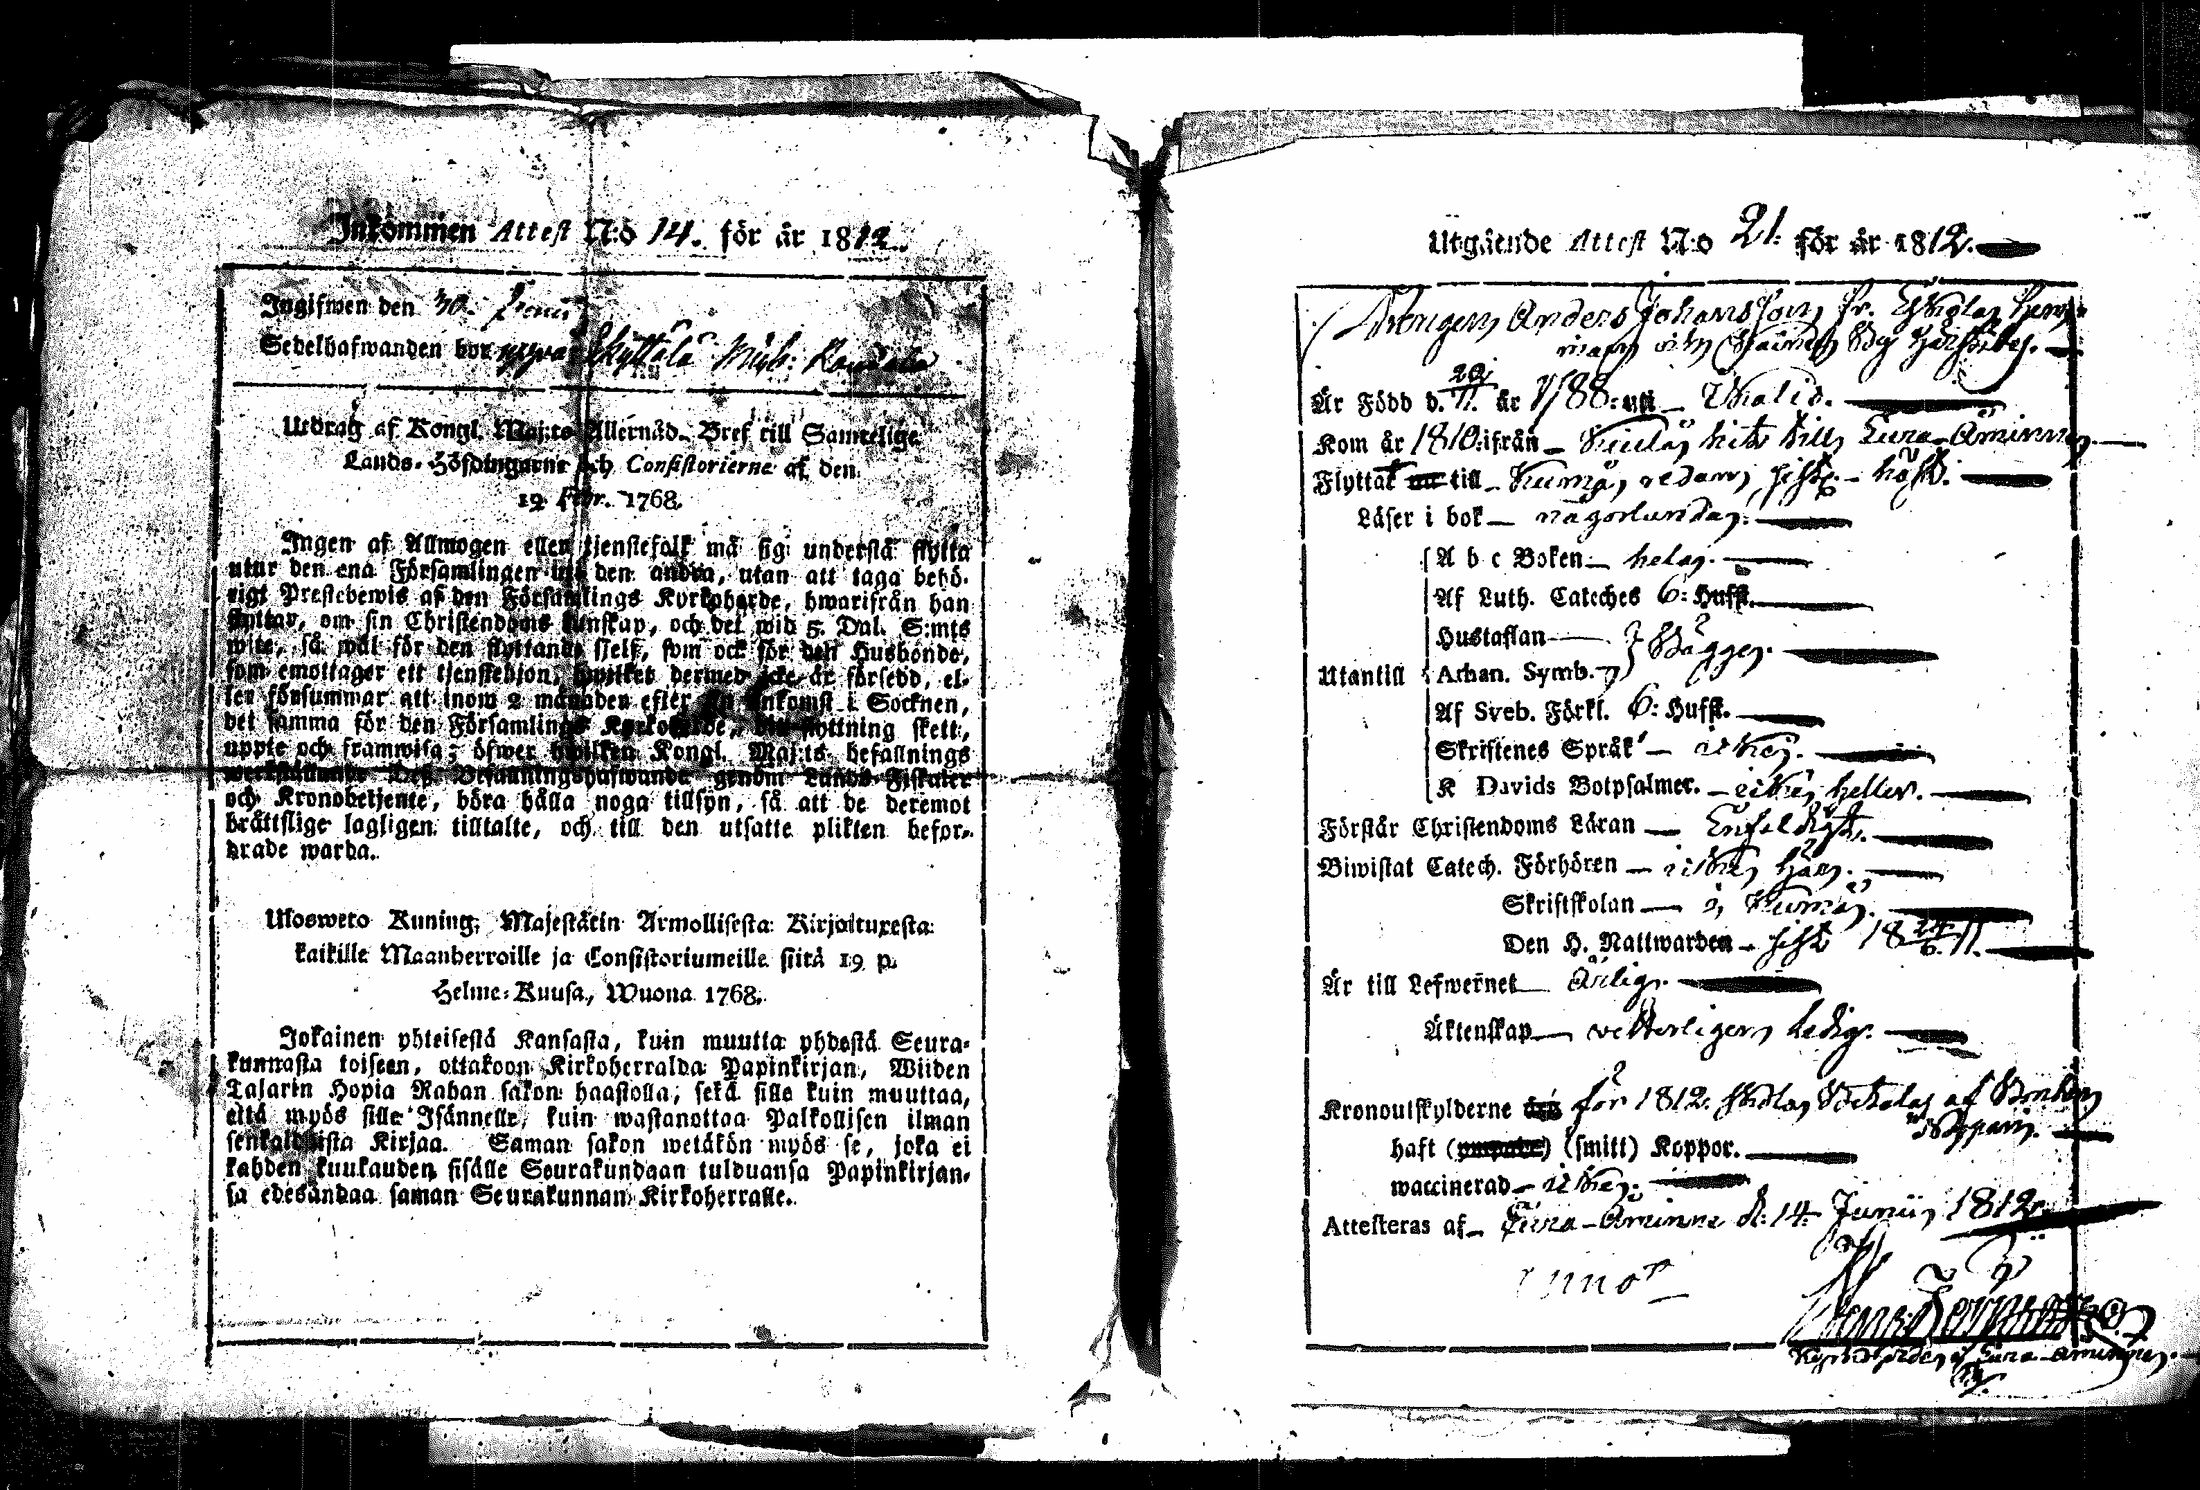 Inkommen Attest N:o 14. för år 1812.
Ingifwen den 30. Junii
Sedelhafwanden bor
Utdrag af Kongl. Maj:ts Allernåd. Bref till Samtelige
Lands-Höfdingarne och Consistorierne af den
19 Febr. 1768.
Ingen af Allmogen eller tjenstefolk må sig understå flytta
utur den ena Församlingen in i den andra, utan att taga behö-
rigt Prestebewis af den Församlings Kyrkoherde, hwarifrån han
flyttar, om sin Christendoms kunskap, och det wid 5. Dal. S:mts
wite, så wäl för den flyttande sjelf, som ock för den Husbonde,
som emottager ett tjenstehjon, hwilket dermed icke är försedd, el-
ler försummar att inom 2 månaden efter sin ankomst i Socknen,
det samma för den Församlings Kyrkoherde, dit flyttning skett,
uppte och framwisa; öfwer hwilken Kongl. Maj:ts befallnings
werkställande Deß Befallningshafwande genom Lands-Fiskaler
och Kronobetjente, böra hålla noga tillsyn, så att de deremot
bråttslige lagligen tilltalte, och till den utsatte plikten befor-
drade warda.
Ulosweto Kuning. Majestätin Armollisesta Kirjoituxesta
kaikille Maanherroille ja Consistoriumeille siitä 19 p.
Helme-Kuusa, Wuona 1768.
Jokainen yhteisestä Kansasta, kuin muutta yhdestä Seura-
kunnasta toiseen, ottakoon Kirkoherralda Papinkirjan, Wiiden
Talarin Hopia Rahan sakon haastolla, sekä sille kuin muuttaa,
että myös sille Isännelle, kuin wastanottaa Palkollisen ilman
senkaldaista Kirjaa. Saman sakon wetäkön myös se, joka ei
kahden kuukauden sisälle Seurakundaan tulduansa Papinkirjan-
sa edesändaa saman Seurakunnan Kirkoherralle.
Utgående Attest N:o 21. för år 1812.
Drengen Anders Johansson fr.
Är Född d. 29/11. år 1788: uti Ulvila.
Kom år 1810: ifrån hit till Eura-Åminne.
Flyttat till Kumo, redan sistl. höst.
Läser i bok någorlunda.
A b c Boken hela.
Af Luth. Cateches 6: Hufst.
Hustaflan
Utantill Athan. Symb. } Bägge.
Af Sveb. Förkl. 6: Hufst.
Skriftenes Språk icke.
K Davids Botpsalmer. icke heller.
Förstår Christendoms Läran Enfaldigt.
Biwistat Catech. Förhören icke här.
Skriftskolan i Kumo.
Den H. Nattwarden sist 18 24/6 11.
Är till Lefwernet Ärlig.
Äktenskap wetterligen ledig.
Kronoutskylderne för 1812.
haft (smitt) Koppor.
waccinerad icke.
Attesteras af Eura-Åminne d. 14. Junii 1812.
Kyrkoherde i Eura-Åminne.